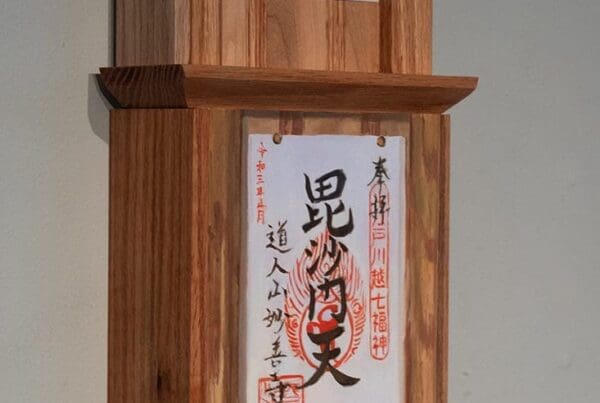 奉拝
川越七福神
毘沙門天
道人山妙善寺
令和三年正月